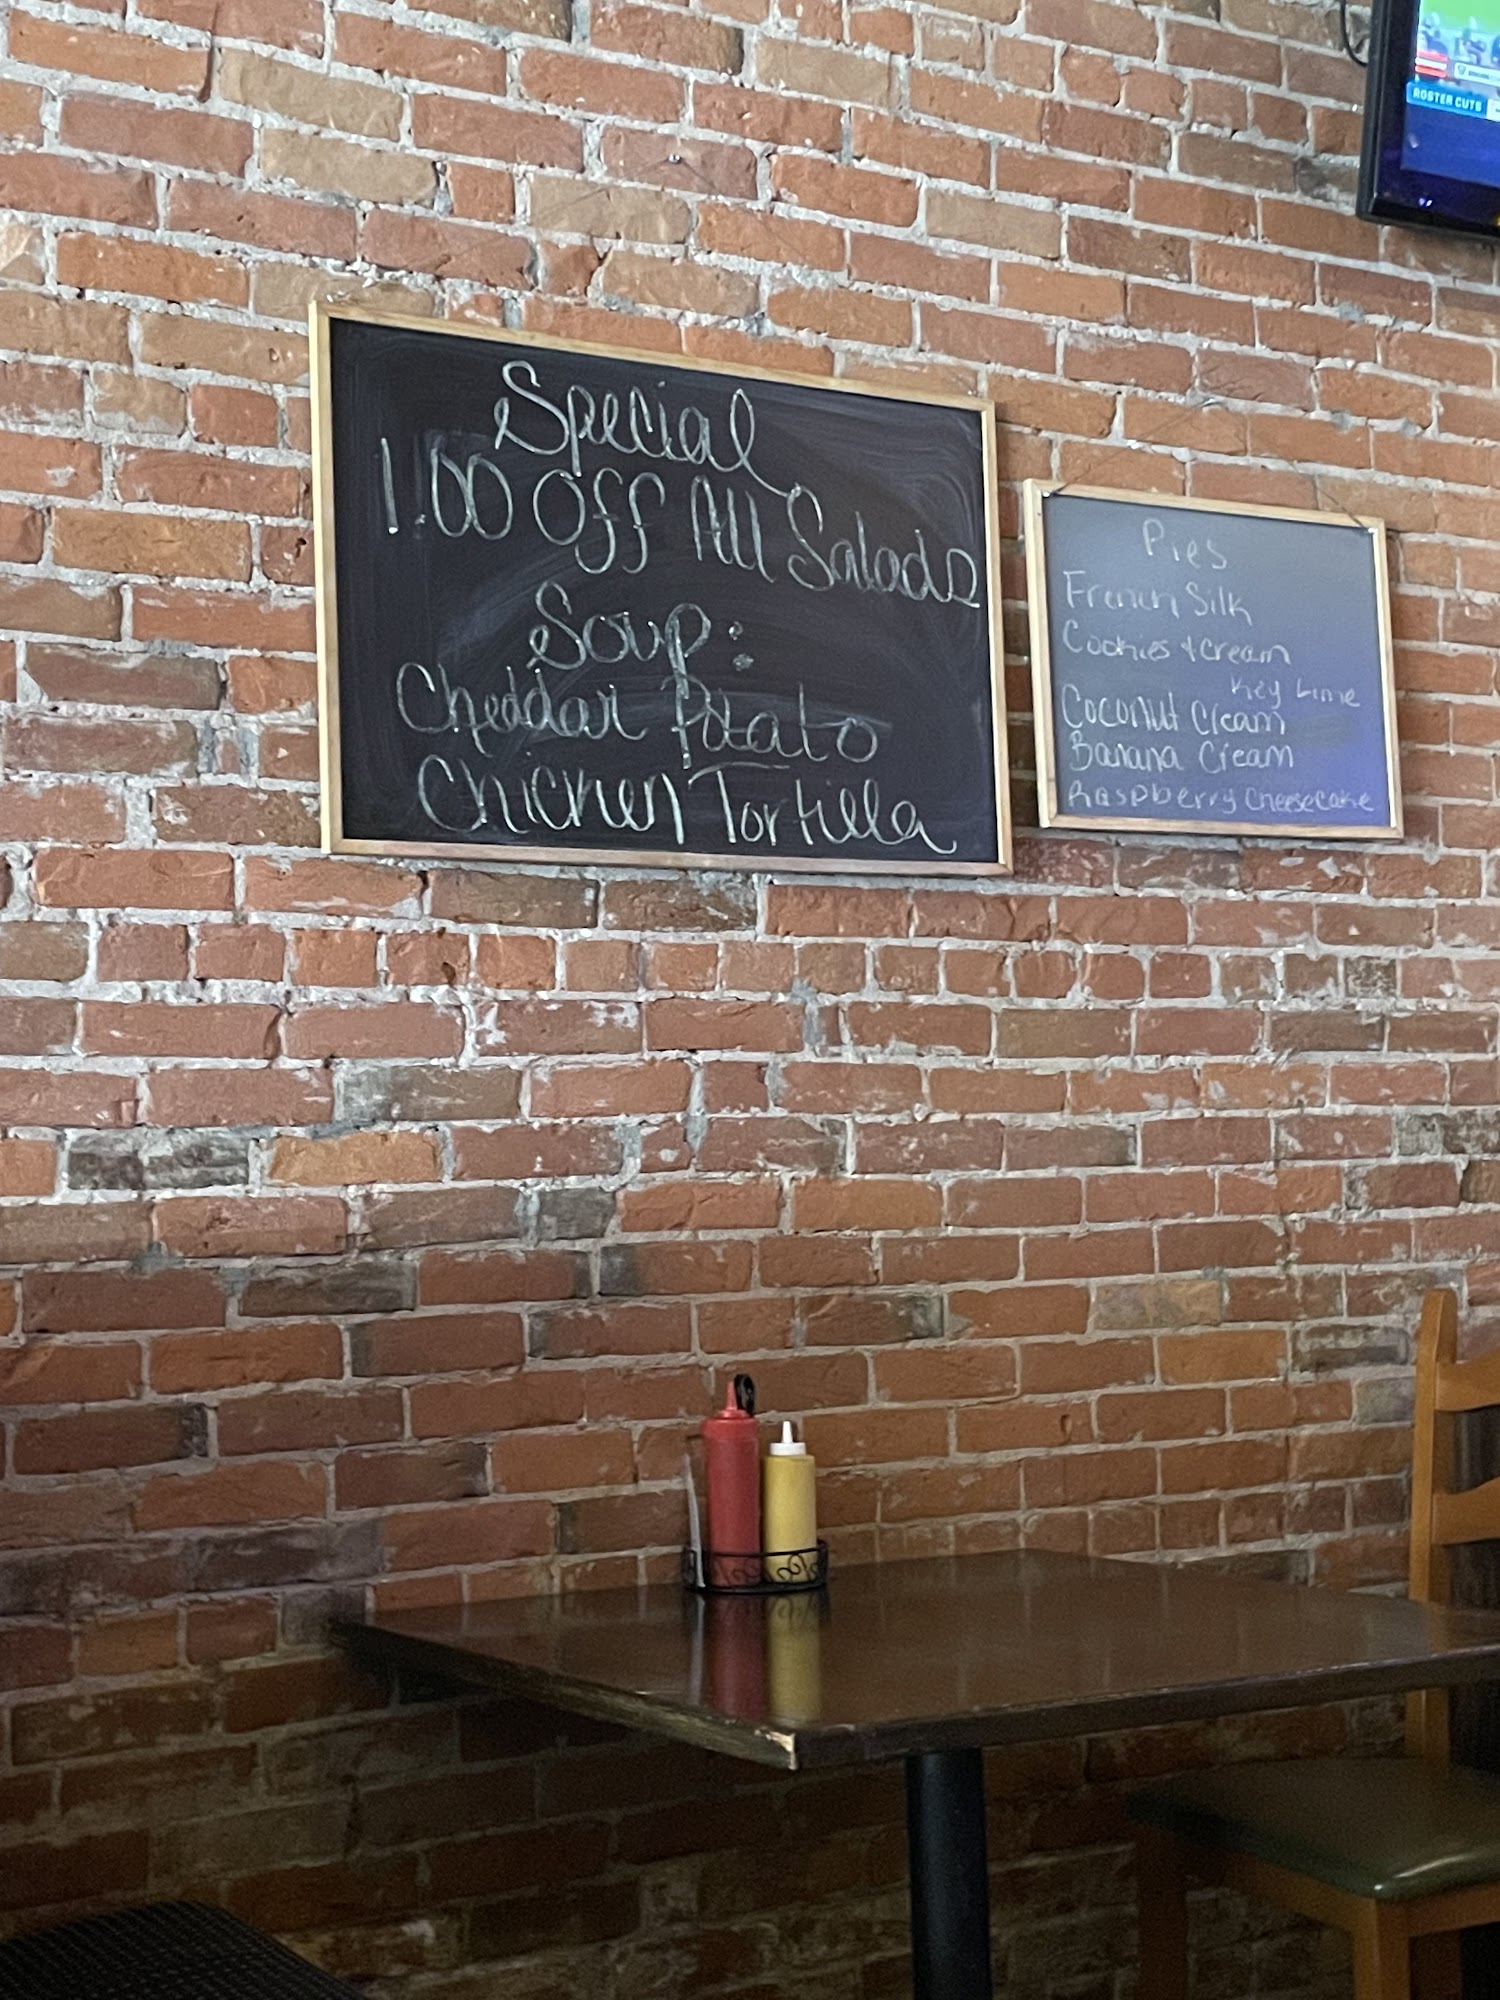 Special
1.00 Off All Salads
Soup:
Cheddar Potato
Chicken Tortilla
Pies
French Silk
Cookies & cream
Key Lime
Coconut Cream
Banana Cream
Raspberry Cheesecake
ROSTER CUTS